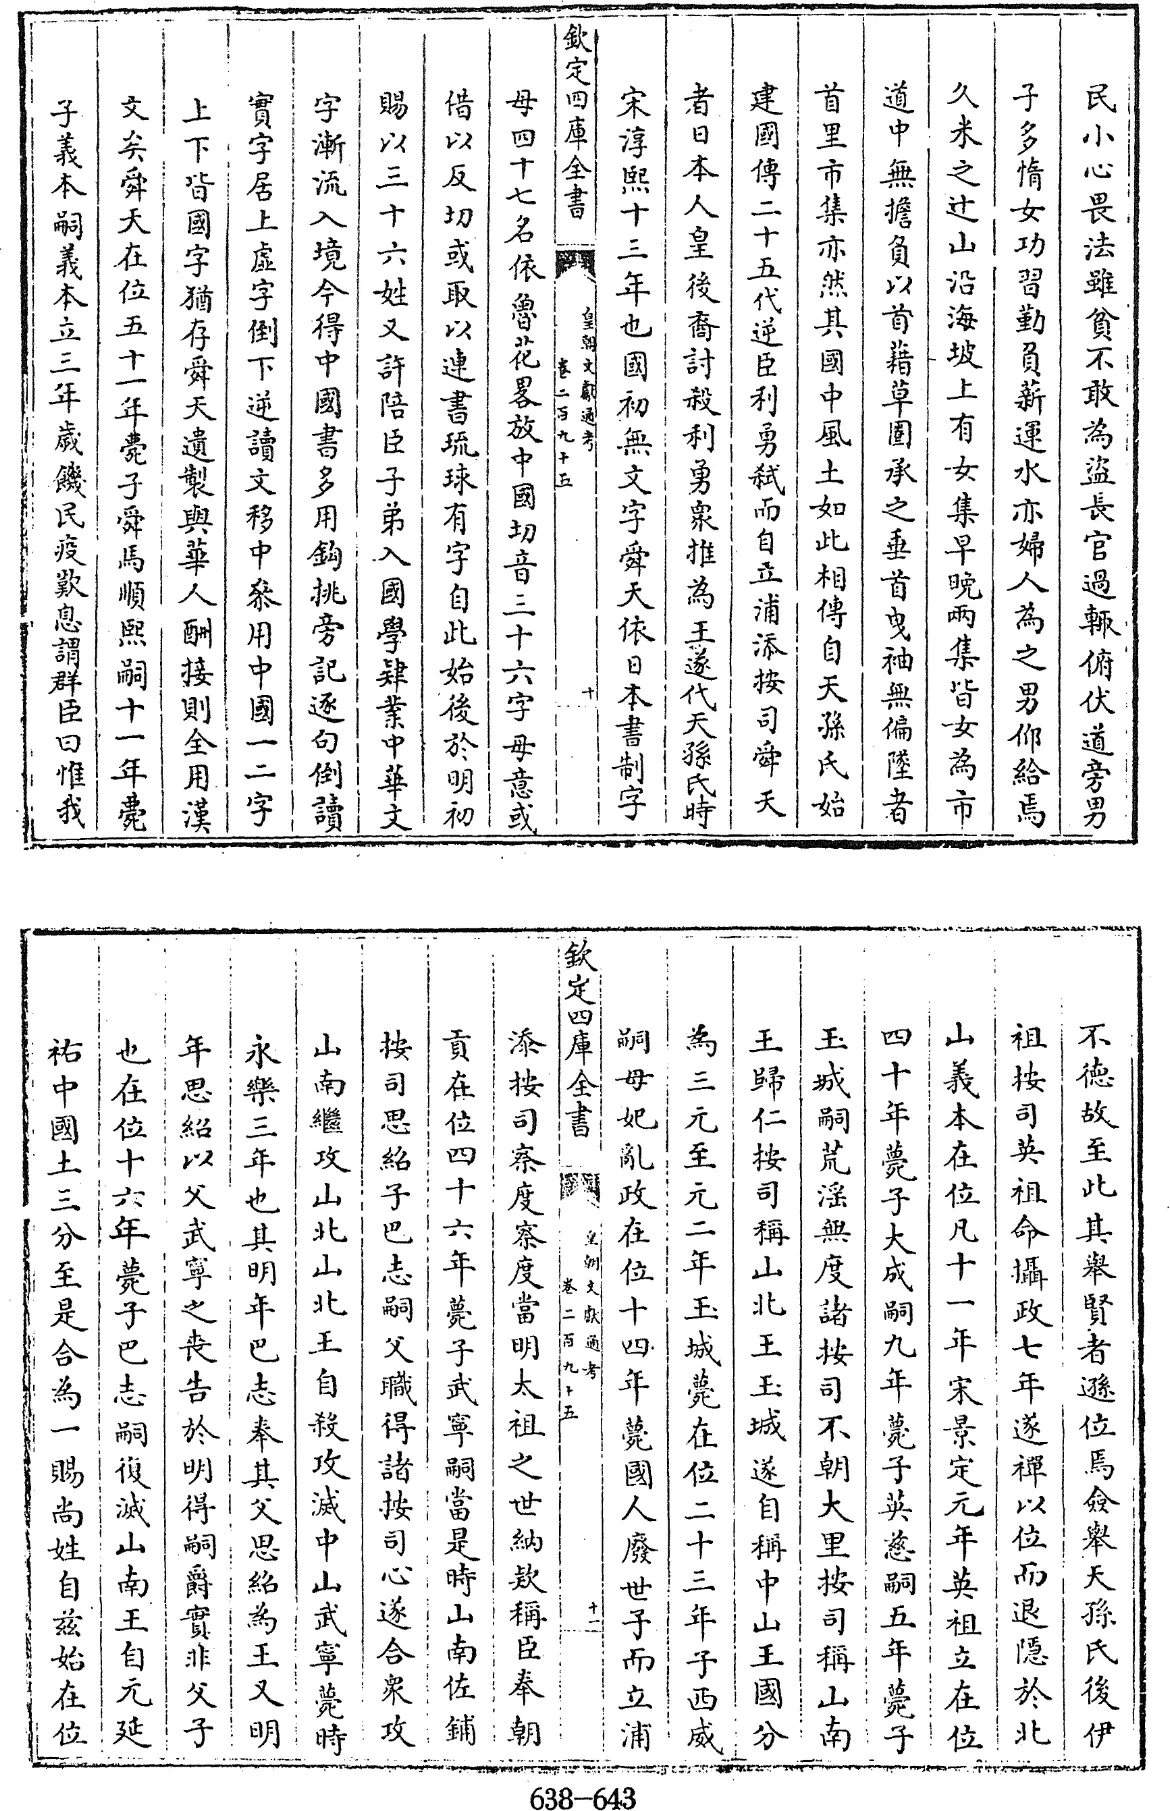 民小心畏法雖貧不敢為盜長官過輙俯伏道旁男
子多惰女功習勤負薪運水亦婦人為之男仰給焉
久米之辻山沿海坡上有女集早晚兩集皆女為市
道中無擔負以首藉草圈承之垂首曳袖無偏墜者
首里市集亦然其國中風土如此相傳自天孫氏始
建國傳二十五代逆臣利勇弒而自立浦添按司舜天
者日本人皇後裔討殺利勇衆推為王遂代天孫氏時
宋淳熙十三年也國初無文字舜天依日本書制字
欽定四庫全書
皇朝文獻通考
卷二百九十五
十
母四十七名依魯花畧放中國切音三十六字母意或
借以反切或取以連書琉球有字自此始後於明初
賜以三十六姓又許陪臣子弟入國學肄業中華文
字漸流入境今得中國書多用鈎挑旁記逐句倒讀
實字居上虛字倒下逆讀文移中叅用中國一二字
上下皆國字猶存舜天遺製與華人酬接則全用漢
文矣舜天在位五十一年薨子舜馬順熙嗣十一年薨
子義本嗣義本立三年歲饑民疫歎息謂群臣曰惟我
不德故至此其舉賢者遜位焉僉舉天孫氏後伊
祖按司英祖命攝政七年遂禪以位而退隱於北
山義本在位凡十一年宋景定元年英祖立在位
四十年薨子大成嗣九年薨子英慈嗣五年薨子
玉城嗣荒淫無度諸按司不朝大里按司稱山南
王歸仁按司稱山北王玉城遂自稱中山王國分
為三元至元二年玉城薨在位二十三年子西威
嗣母妃亂政在位十四年薨國人廢世子而立浦
欽定四庫全書
皇朝文獻通考
卷二百九十五
十一
添按司察度察度當明太祖之世納欵稱臣奉朝
貢在位四十六年薨子武寧嗣當是時山南佐鋪
按司思紹子巴志嗣父職得諸按司心遂合衆攻
山南繼攻山北山北王自殺攻滅中山武寧薨時
永樂三年也其明年巴志奉其父思紹為王又明
年思紹以父武寧之喪告於明得嗣爵實非父子
也在位十六年薨子巴志嗣復滅山南王自元延
祐中國土三分至是合為一賜尚姓自茲始在位
638-643